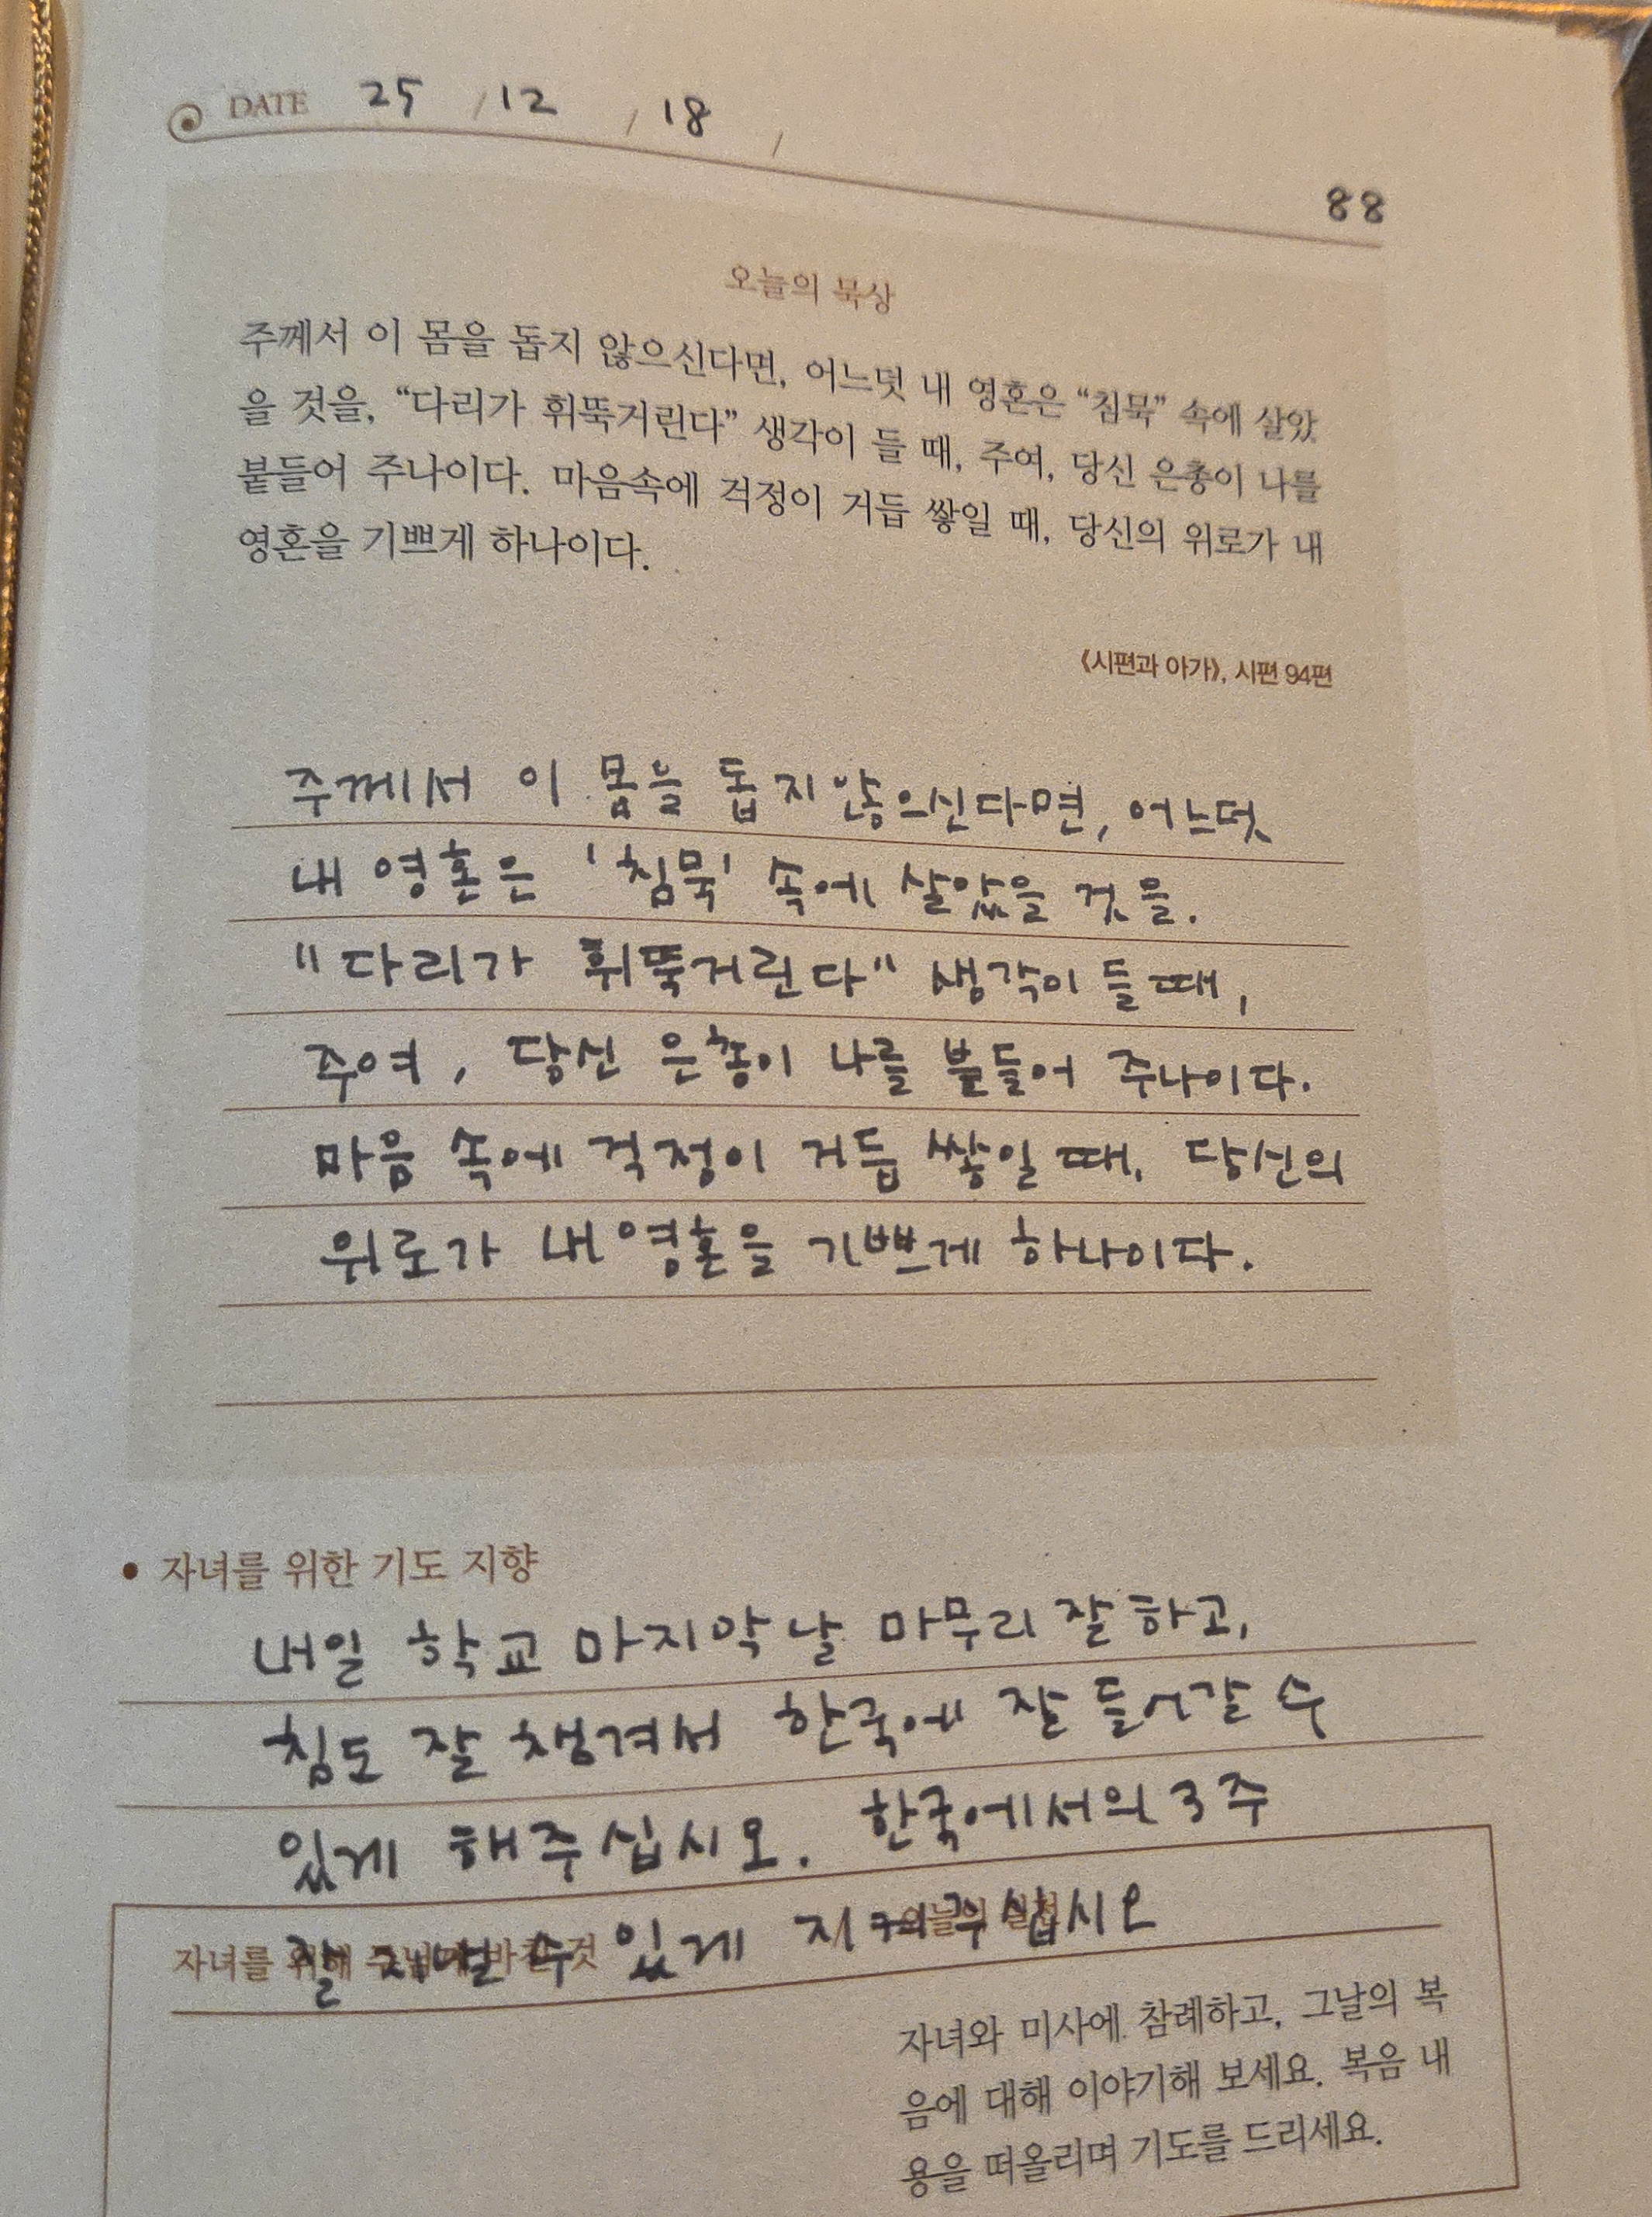 DATE 25 / 12 / 18 /
88
오늘의 묵상
주께서 이 몸을 돕지 않으신다면, 어느덧 내 영혼은 “침묵” 속에 살았
을 것을, “다리가 휘뚝거린다” 생각이 들 때, 주여, 당신 은총이 나를
붙들어 주나이다. 마음속에 걱정이 거듭 쌓일 때, 당신의 위로가 내
영혼을 기쁘게 하나이다.
《시편과 아가》, 시편 94편
주께서 이 몸을 돕지 않으신다면, 어느덧
내 영혼은 '침묵' 속에 살았을 것을.
"다리가 휘뚝거린다" 생각이 들 때,
주여, 당신 은총이 나를 붙들어 주나이다.
마음 속에 걱정이 거듭 쌓일 때, 당신의
위로가 내 영혼을 기쁘게 하나이다.
• 자녀를 위한 기도 지향
내일 학교 마지막 날 마무리 잘 하고,
짐도 잘 챙겨서 한국에 잘 들어갈 수
있게 해주십시오. 한국에서의 3주
잘 지낼 수 있게 지켜주십시오
자녀를 위해 것
오늘의 실천
자녀와 미사에 참례하고, 그날의 복
음에 대해 이야기해 보세요. 복음 내
용을 떠올리며 기도를 드리세요.